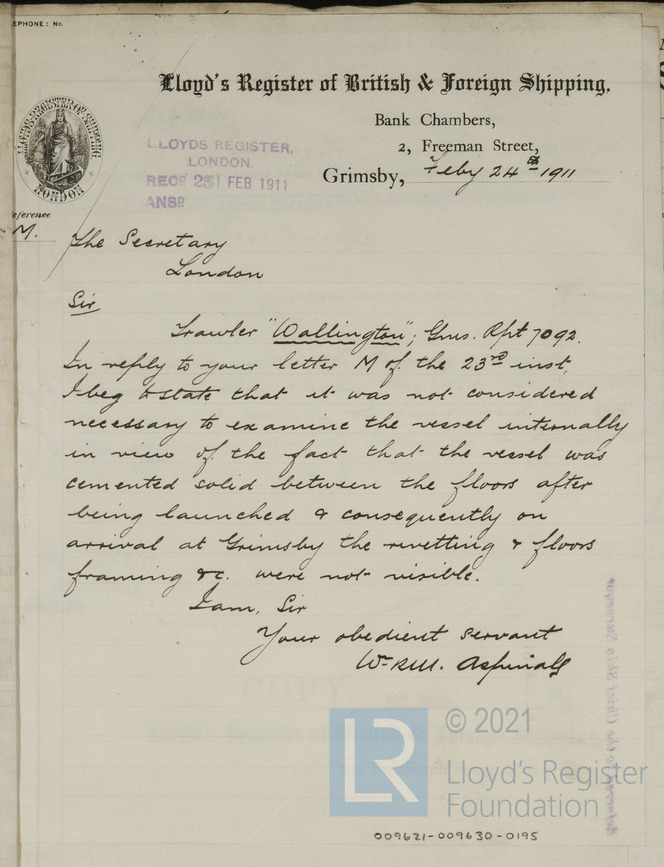 EPHONE: No.
LLOYD'S REGISTER OF SHIPPING
LONDON
Lloyd's Register of British & Foreign Shipping,
Bank Chambers,
2, Freeman Street,
Grimsby, Feby 24th 1911
LLOYDS REGISTER,
LONDON.
RECD 25 FEB 1911
ANSD
eference
M.
The Secretary
London
Sir
Trawler "Wallington"; Gms. Rpt 7092.
In reply to your letter M of the 23rd inst,
I beg to state that it was not considered
necessary to examine the vessel internally
in view of the fact that the vessel was
cemented solid between the floors after
being launched & consequently on
arrival at Grimsby the rivetting & floors
framing &c. were not visible.
I am, Sir
Your obedient servant
Aspinall
COPY.
Referred to the Chief Ship Surveyor
LR
© 2021
Lloyd's Register
Foundation
009621-009630-0195